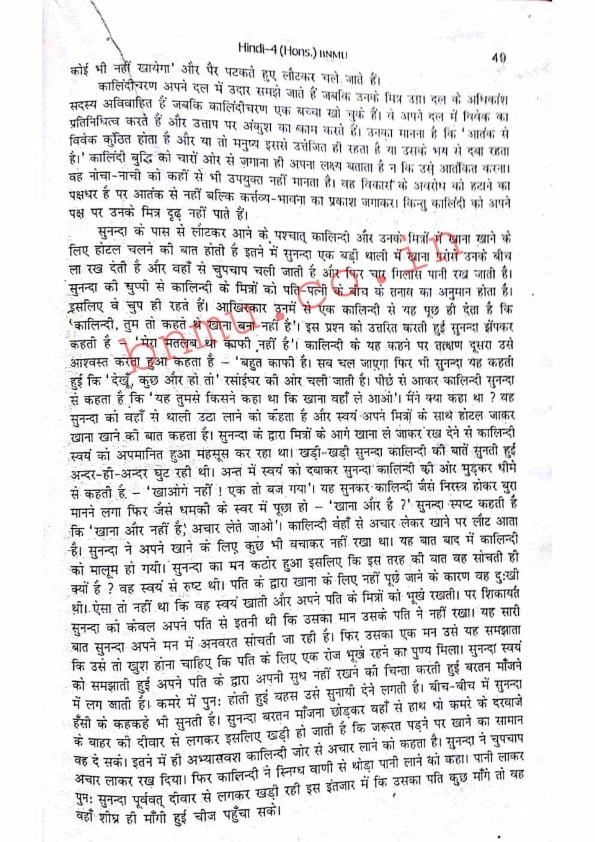 Hindi-4 (Hons.) BNMU
49
कोई भी नहीं खायेगा' और पैर पटकते हुए लौटकर चले जाते हैं।
कालिंदीचरण अपने दल में उदार समझे जाते हैं जबकि उनके मित्र उग्र। दल के अधिकांश
सदस्य अविवाहित हैं जबकि कालिंदीचरण एक बच्चा खो चुके हैं। वे अपने दल में विवेक का
प्रतिनिधित्व करते हैं और उत्ताप पर अंकुश का काम करते हैं। उनका मानना है कि 'आतंक से
विवेक कुंठित होता है और या तो मनुष्य इससे उत्तेजित ही रहता है या उसके भय से दबा रहता
है।' कालिंदी बुद्धि को चारों ओर से जगाना ही अपना लक्ष्य बताता है न कि उसे आतंकित करना।
वह नोचा-नाची को कहीं से भी उपयुक्त नहीं मानता है। वह विकास के अवरोध को हटाने का
पक्षधर है पर आतंक से नहीं बल्कि कर्त्तव्य-भावना का प्रकाश जगाकर। किन्तु कालिंदी को अपने
पक्ष पर उनके मित्र दृढ़ नहीं पाते हैं।
सुनन्दा के पास से लौटकर आने के पश्चात् कालिन्दी और उनके मित्रों में खाना खाने के
लिए होटल चलने की बात होती है इतने में सुनन्दा एक बड़ी थाली में खाना परोसे उनके बीच
ला रख देती है और वहाँ से चुपचाप चली जाती है और फिर चार गिलास पानी रख जाती है।
सुनन्दा की चुप्पी से कालिन्दी के मित्रों को पति-पत्नी के बीच के तनाव का अनुमान होता है।
इसलिए वे चुप ही रहते हैं। आखिरकार उनमें से एक कालिन्दी से यह पूछ ही देता है कि
'कालिन्दी, तुम तो कहते थे खाना बना नहीं है'। इस प्रश्न को उत्तरित करती हुई सुनन्दा झेंपकर
कहती है – 'मेरा मतलब था काफी नहीं है'। कालिन्दी के यह कहने पर तत्क्षण दूसरा उसे
आश्वस्त करता हुआ कहता है – 'बहुत काफी है। सब चल जाएगा फिर भी सुनन्दा यह कहती
हुई कि 'देखूँ, कुछ और हो तो' रसोईघर की ओर चली जाती है। पीछे से आकर कालिन्दी सुनन्दा
से कहता है कि 'यह तुमसे किसने कहा था कि खाना वहाँ ले आओ'। मैंने क्या कहा था ? वह
सुनन्दा को वहाँ से थाली उठा लाने को कहता है और स्वयं अपने मित्रों के साथ होटल जाकर
खाना खाने की बात कहता है। सुनन्दा के द्वारा मित्रों के आगे खाना ले जाकर रख देने से कालिन्दी
स्वयं को अपमानित हुआ महसूस कर रहा था। खड़ी-खड़ी सुनन्दा कालिन्दी की बातें सुनती हुई
अन्दर-ही-अन्दर घुट रही थी। अन्त में स्वयं को दबाकर सुनन्दा कालिन्दी की ओर मुड़कर धीमे
से कहती है – 'खाओगे नहीं ! एक तो बज गया'। यह सुनकर कालिन्दी जैसे निरस्त्र होकर बुरा
मानने लगा फिर जैसे धमकी के स्वर में पूछा हो – 'खाना और है ?' सुनन्दा स्पष्ट कहती है
कि 'खाना और नहीं है, अचार लेते जाओ'। कालिन्दी वहाँ से अचार लेकर खाने पर लौट आता
है। सुनन्दा ने अपने खाने के लिए कुछ भी बचाकर नहीं रखा था। यह बात बाद में कालिन्दी
को मालूम हो गयी। सुनन्दा का मन कठोर हुआ इसलिए कि इस तरह की बात वह सोचती ही
क्यों है ? वह स्वयं से रुष्ट थी। पति के द्वारा खाना के लिए नहीं पूछे जाने के कारण वह दुःखी
थी। ऐसा तो नहीं था कि वह स्वयं खाती और अपने पति के मित्रों को भूखे रखती। पर शिकायत
सुनन्दा को केवल अपने पति से इतनी थी कि उसका मान उसके पति ने नहीं रखा। यह सारी
बात सुनन्दा अपने मन में अनवरत सोचती जा रही है। फिर उसका एक मन उसे यह समझाता
कि उसे तो खुश होना चाहिए कि पति के लिए एक रोज भूखे रहने का पुण्य मिला। सुनन्दा स्वयं
को समझाती हुई अपने पति के द्वारा अपनी सुध नहीं रखने की चिन्ता करती हुई बरतन माँजने
में लग जाती है। कमरे में पुनः होती हुई बहस उसे सुनायी देने लगती है। बीच-बीच में सुनन्दा
हँसी के कहकहे भी सुनती है। सुनन्दा बरतन माँजना छोड़कर वहाँ से हाथ धो कमरे के दरवाजे
के बाहर की दीवार से लगकर इसलिए खड़ी हो जाती है कि जरूरत पड़ने पर खाने का सामान
वह दे सके। इतने में ही अभ्यासवश कालिन्दी जोर से अचार लाने को कहता है। सुनन्दा ने चुपचाप
अचार लाकर रख दिया। फिर कालिन्दी ने स्निग्ध वाणी से थोड़ा पानी लाने को कहा। पानी लाकर
पुनः सुनन्दा पूर्ववत् दीवार से लगकर खड़ी रही इस इंतजार में कि उसका पति कुछ माँगे तो वह
वहाँ शीघ्र ही माँगी हुई चीज पहुँचा सके।
bnmu.co.in